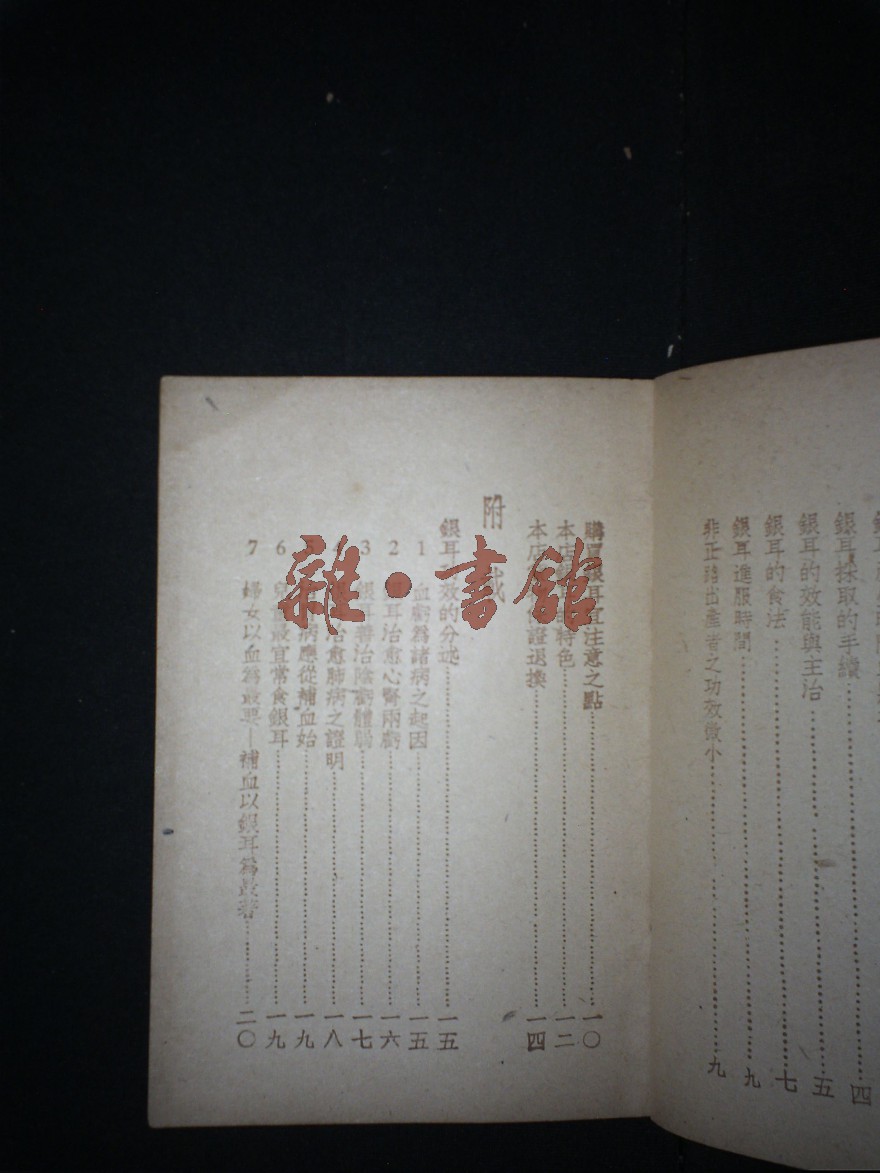 銀耳採取的手續……四
銀耳的效能與主治……五
銀耳的食法……七
銀耳進服時間……九
非正路出產者之功效微小……九
購買銀耳宜注意之點……一〇
本店 特色……一二
本店 證退換……一四
附
銀耳 效的分述……一五
1 血虧爲諸病之起因……一五
2 耳治愈心腎兩虧……一六
3 銀耳善治陰虧體弱……一七
4 治愈肺病之證明……一八
病應從補血始……一九
6 最宜常食銀耳……一九
7 婦女以血爲最要—補血以銀耳爲最著……二〇
雜·書館